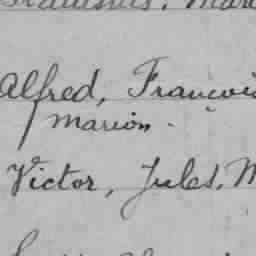 Alfred, François
Marion.
Victor, Jules, M